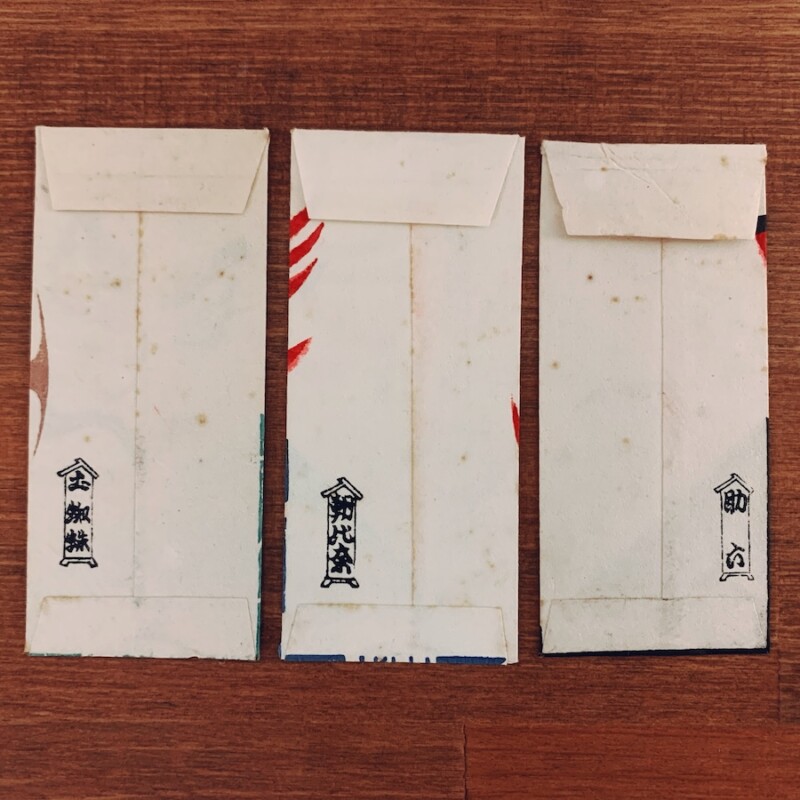 土蜘蛛
朝比奈
助六